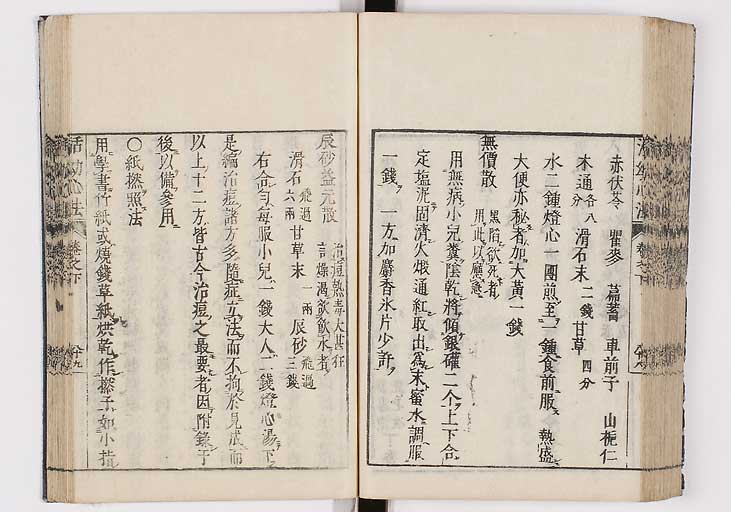 赤伏苓 瞿麥 萹蓄 車前子 山梔仁
木通各八分 滑石末二錢 甘草四分
水二鍾燈心一團煎至一鍾食前服熱盛
大便亦秘者加大黃一錢
無價散 黑陷欲死者用此以應急
用無病小兒糞陰乾將傾銀確二个上下合
定塩泥固濟火煅通紅取出為末蜜水調服
一錢 一方加麝香氷片少許
辰砂益元散 治痘熱毒大甚狂言燥渴欲飲水者
滑石飛過六兩 甘草末一兩 辰砂飛過三錢
右合匀每服小兒一錢大人二錢燈心湯下
是編治痘諸方多隨症立法而不拘於見成而
以上十二方皆古今治痘之最要者因附錄于
後以備參用
〇紙撚照法
用學書竹紙或燒錢草紙烘乾作撚子如小指
活幼心法 卷之下 十九